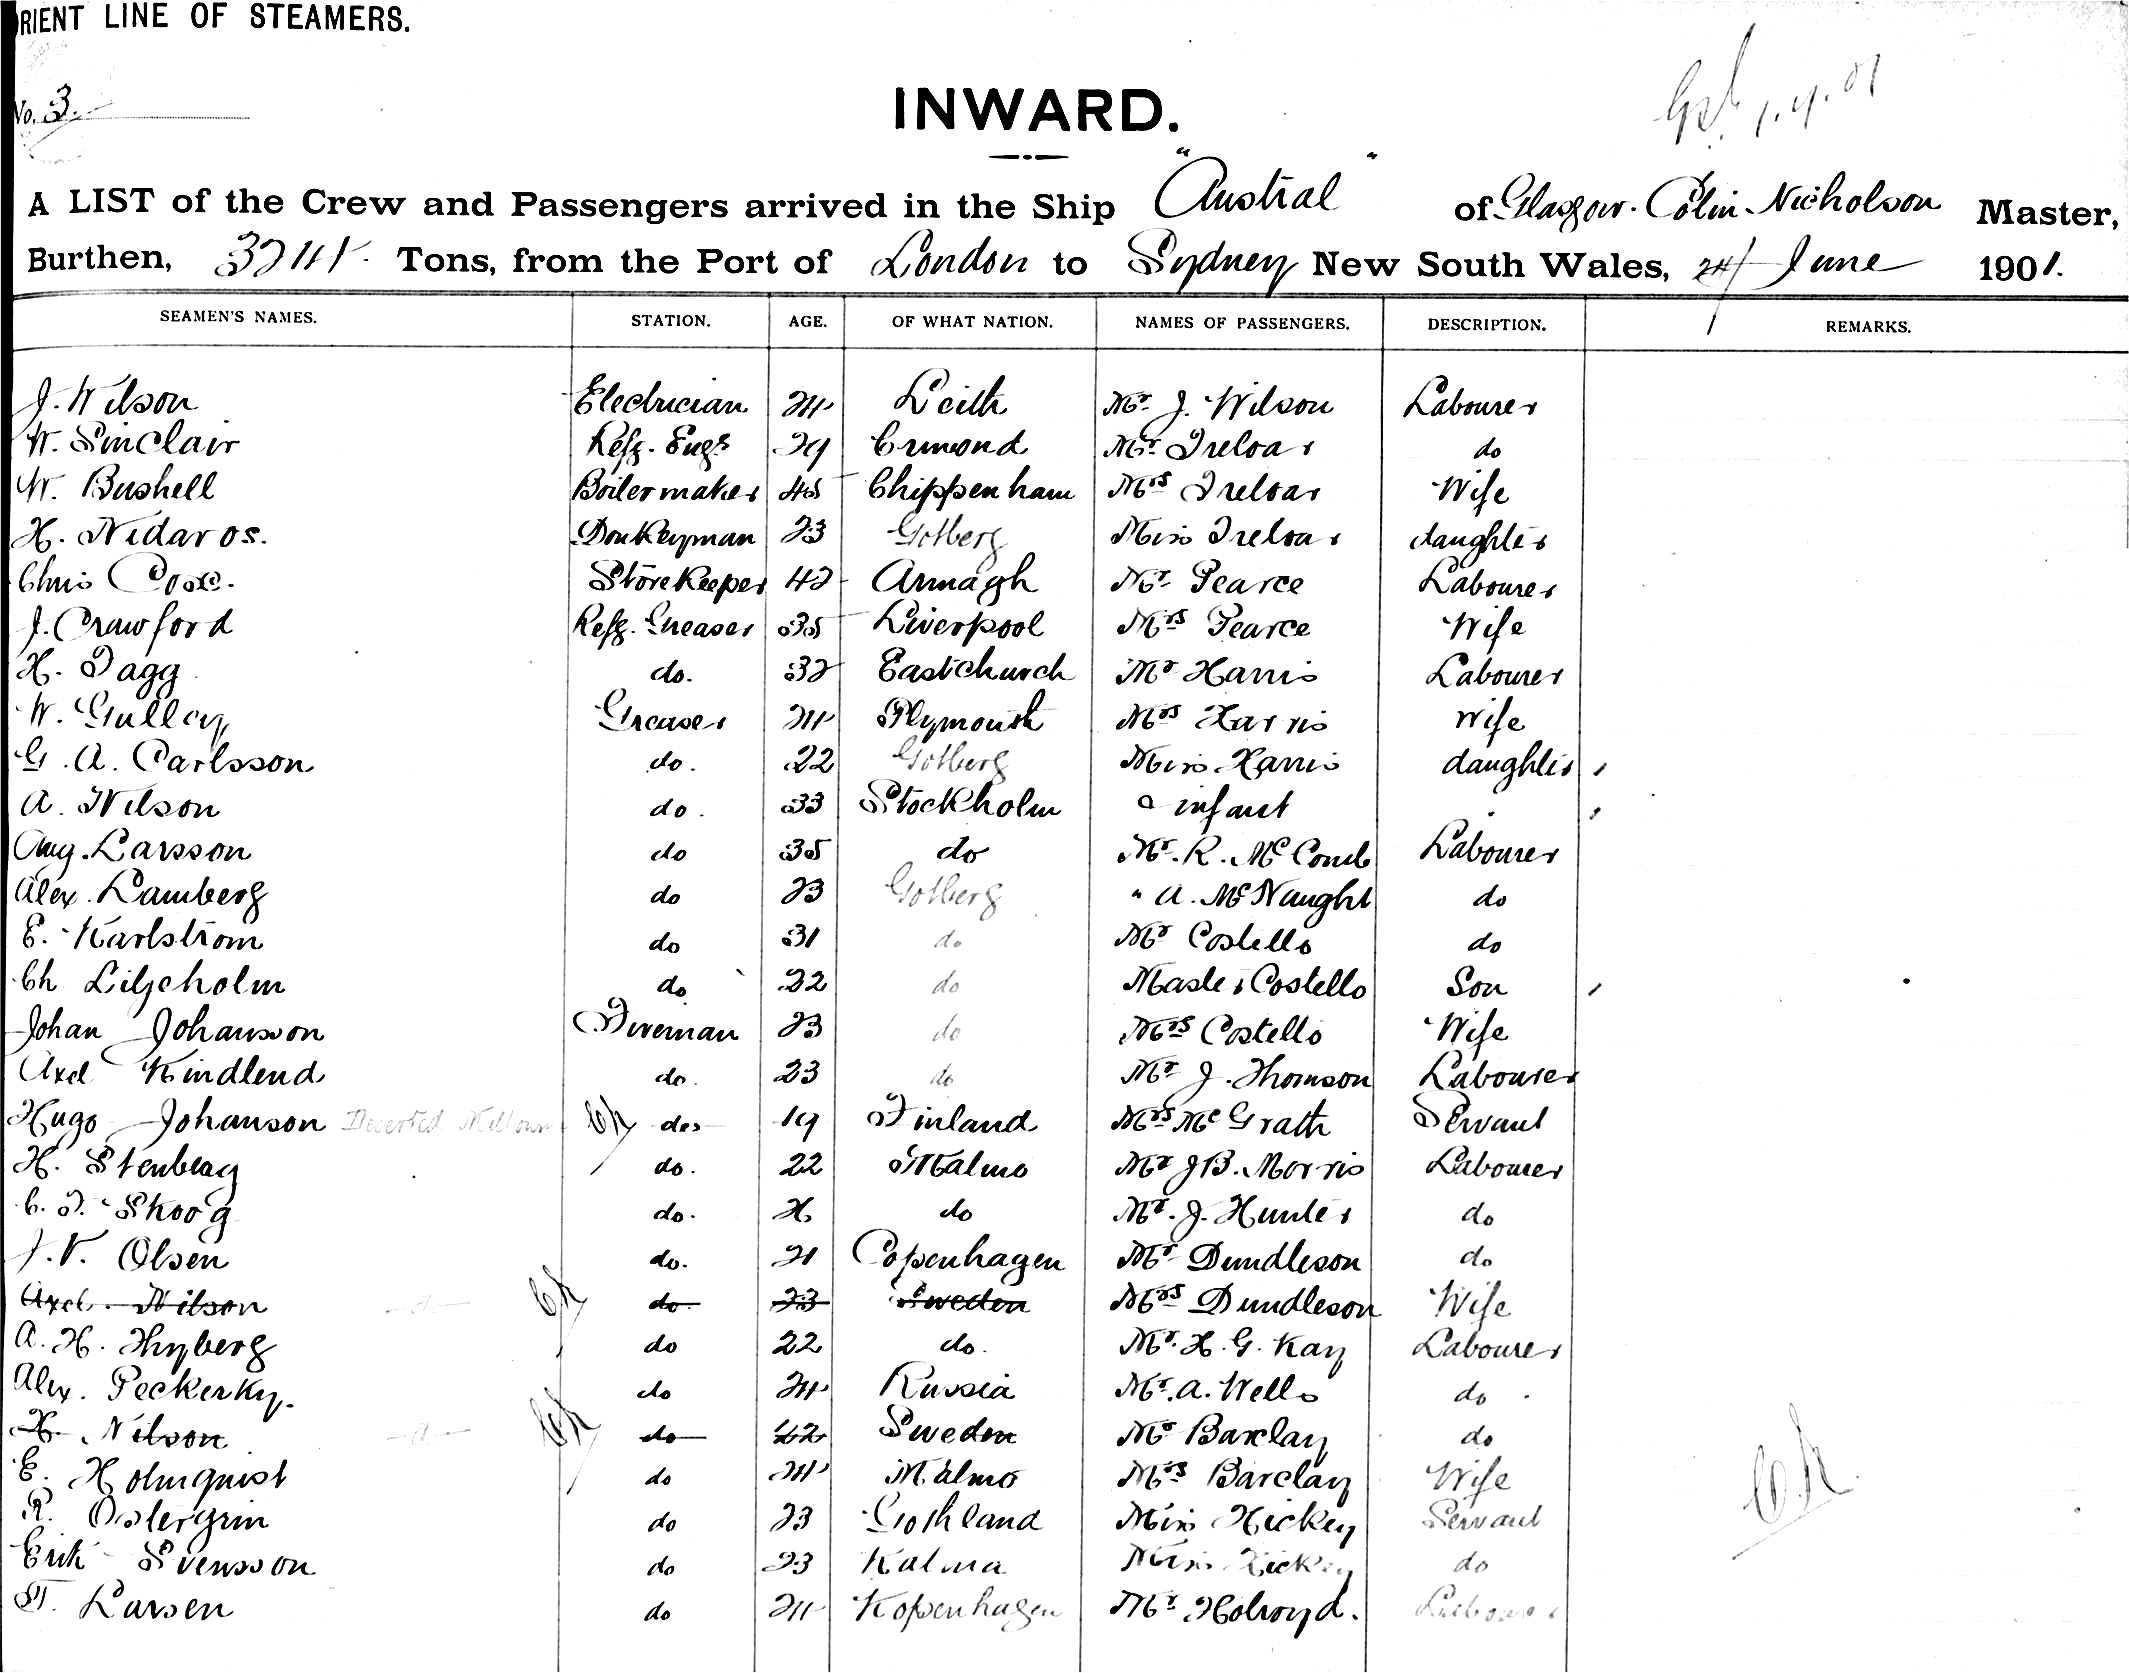 ORIENT LINE OF STEAMERS.
No. 3.
INWARD.
A LIST of the Crew and Passengers arrived in the Ship "Austral" of Glasgow. Colin Nicholson Master,
Burthen, Tons, from the Port of London to Sydney New South Wales, 24 June 1901.
SEAMEN'S NAMES. STATION. AGE. OF WHAT NATION. NAMES OF PASSENGERS. DESCRIPTION. REMARKS.
J. Wilson Electrician 24 Leith Mr. J. Wilson Labourer
W. Sinclair Refg. Engr 29 Ormond Mr. Treloar do
W. Bushell Boilermaker 45 Chippenham Mrs Treloar Wife
H. Nidaros. Donkeyman 23 Gotberg Miss Treloar daughter
Chris Storekeeper 42 Armagh Mr. Pearce Labourer
J. Crawford Refg. Greaser 35 Liverpool Mrs Pearce Wife
H. Dagg do. 32 Eastchurch Mr Harris Labourer
W. Gulley Greaser 24 Plymouth Mrs Harris Wife
G. A. Carlsson do. 22 Gotberg Miss Harris daughter
A. Nilson do. 33 Stockholm " infant
Aug. Larsson do 35 do Mr. R. McComb Labourer
Alex. Lamberg do 23 Gotberg " A. McNaught do
E. Karlstrom do 31 do Mr Costello do
Ch Liljeholm do 22 do Master Costello Son
Johan Johansson Fireman 23 do Mrs Costello Wife
Axel Kindlend do. 23 do Mr J. Thomson Labourer
Hugo Johanson Deserted do 19 Finland Mrs McGrath Servant
H. Stenberg do. 22 Malmo Mr J B. Morris Labourer
C. J. Skoog do. do Mr. J. Hunter do
J. V. Olsen do. 21 Copenhagen Mr Dundleson do
Axel. Nilson do 23 Sweden Mrs Dundleson Wife
A. H. Thyberg do 22 do. Mr. H. G. Kay Labourer
Alex. Peckerky. do 24 Russia Mr. A. Wells do
H. Nilson do 22 Sweden Mr Barclay do
E. Holmquist do 24 Malmo Mrs Barclay Wife
R. Ostergrin do 23 Gothland Miss Hickey Servant
Erik Svensson do 23 Kalma Miss Hickey do
Larsen do 24 Kopenhagen Mr Holroyd. Labourer